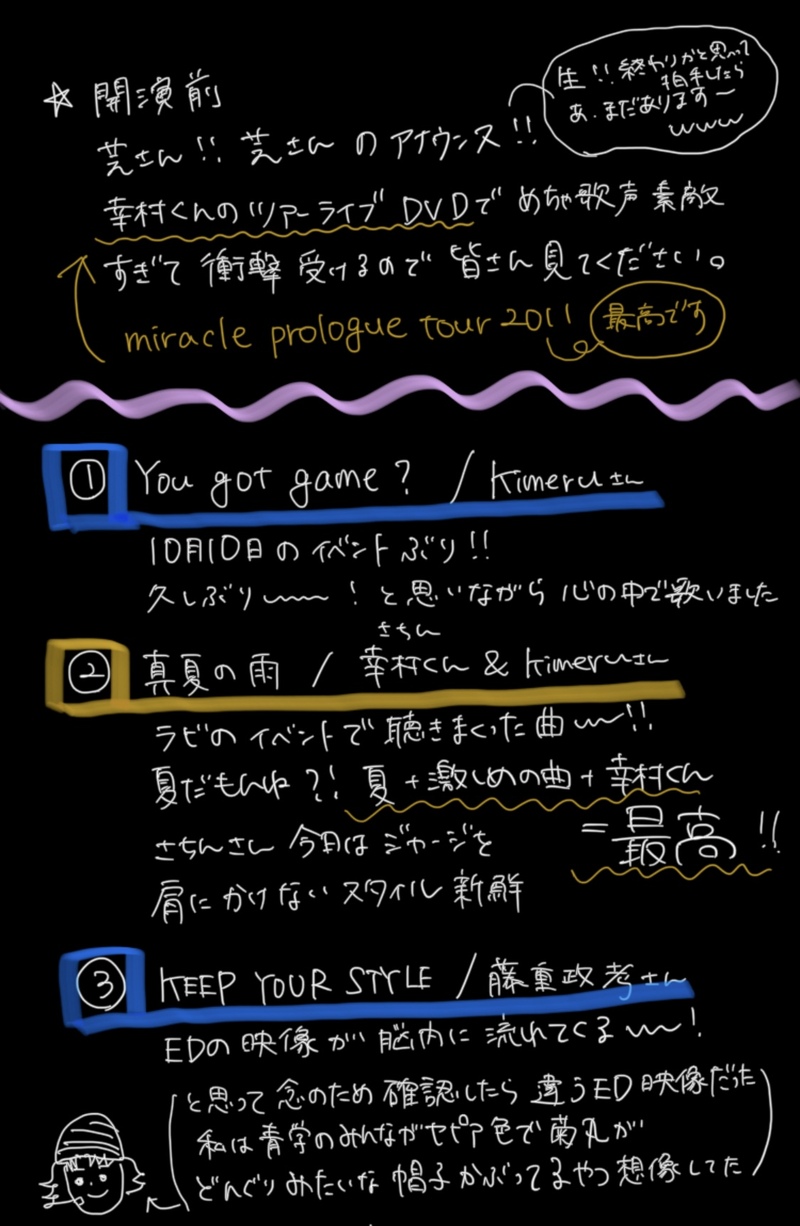 ☆ 開演前
生!! 終わりかと思って
拍手したら
あ、まだありますー
www
芸さん!! 芸さん のアナウンス!!
幸村くんのツアーライブDVDで めちゃ歌声素敵
すぎて 衝撃 受けるので 皆さん見てください。
miracle prologue tour 2011 最高です
① You got game? / Kimeruさん
10月10日のイベントぶり!!
久しぶり〜〜! と思いながら 心の中で歌いました
さちん
② 真夏の雨 / 幸村くん & Kimeruさん
ラビのイベントで 聴きまくった曲〜〜!!
夏だもんね?! 夏+激しめの曲+幸村くん
=最高!!
さちんさん 今日は ジャージを
肩に かけない スタイル 新鮮
③ KEEP YOUR STYLE / 藤重政孝さん
EDの映像が 脳内に 流れてくる〜〜!
と思って 念のため 確認したら 違うED映像だった
私は青学のみんながセピア色で 菊丸が
どんぐりみたいな 帽子かぶってるやつ想像してた